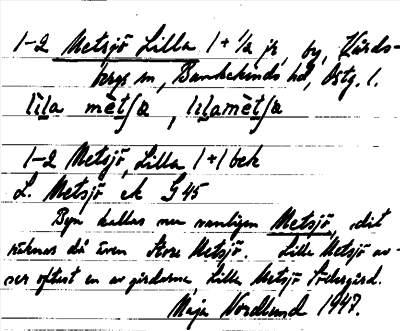 1-2 Metsjö Lilla 1 + 1/2 je, by, Kårds-
bergs sn, Bankekinds hd, Östg. l.
lìla mètʃœ, lìlamètʃœ
1-2 Metsjö, Lilla 1+1 bek
L. Metsjö ek G 45
Byn kallas nu vanligen Metsjö, dit
räknas då även Stora Metsjö. Lilla Metsjö av-
ser oftast en av gårdarna, Lilla Metsjö Södergård.
Maja Nordlund 1947.